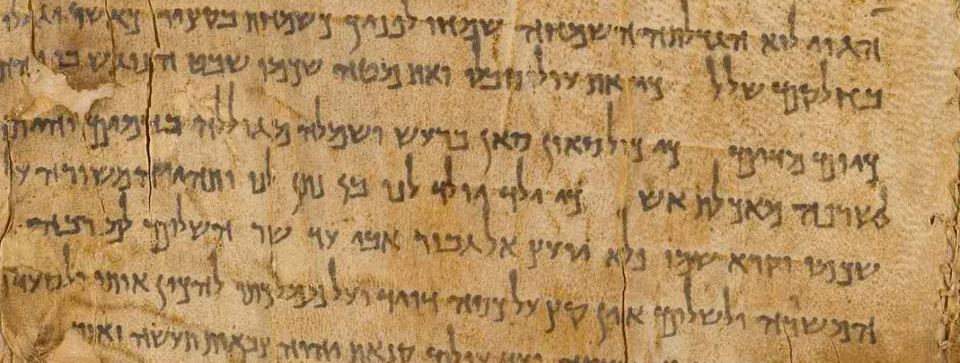 הגוי לוא הגדלתה השמחה שמחו לפניך כשמחת בקציר כאשר
בחלקם שלל כיא את עול סובלו ואת מטה שכמו שבט הנוגש בו
כיום מדים כיא כול סאון סאן ברעש ושמלה מגוללה בדמים
לשרפה מאכלת אש כיא ילד יולד לנו בן נתן לנו ותהי המשורה על
שכמו וקרא שמו פלא יועץ אל גבור אבי עד שר השלום
המשרה ולשלום אין קץ על כסה דויד ועל ממלכתו להכין אותו ולסעדו
ועד עולם קנאת יהוה צבאות תעשה זואת